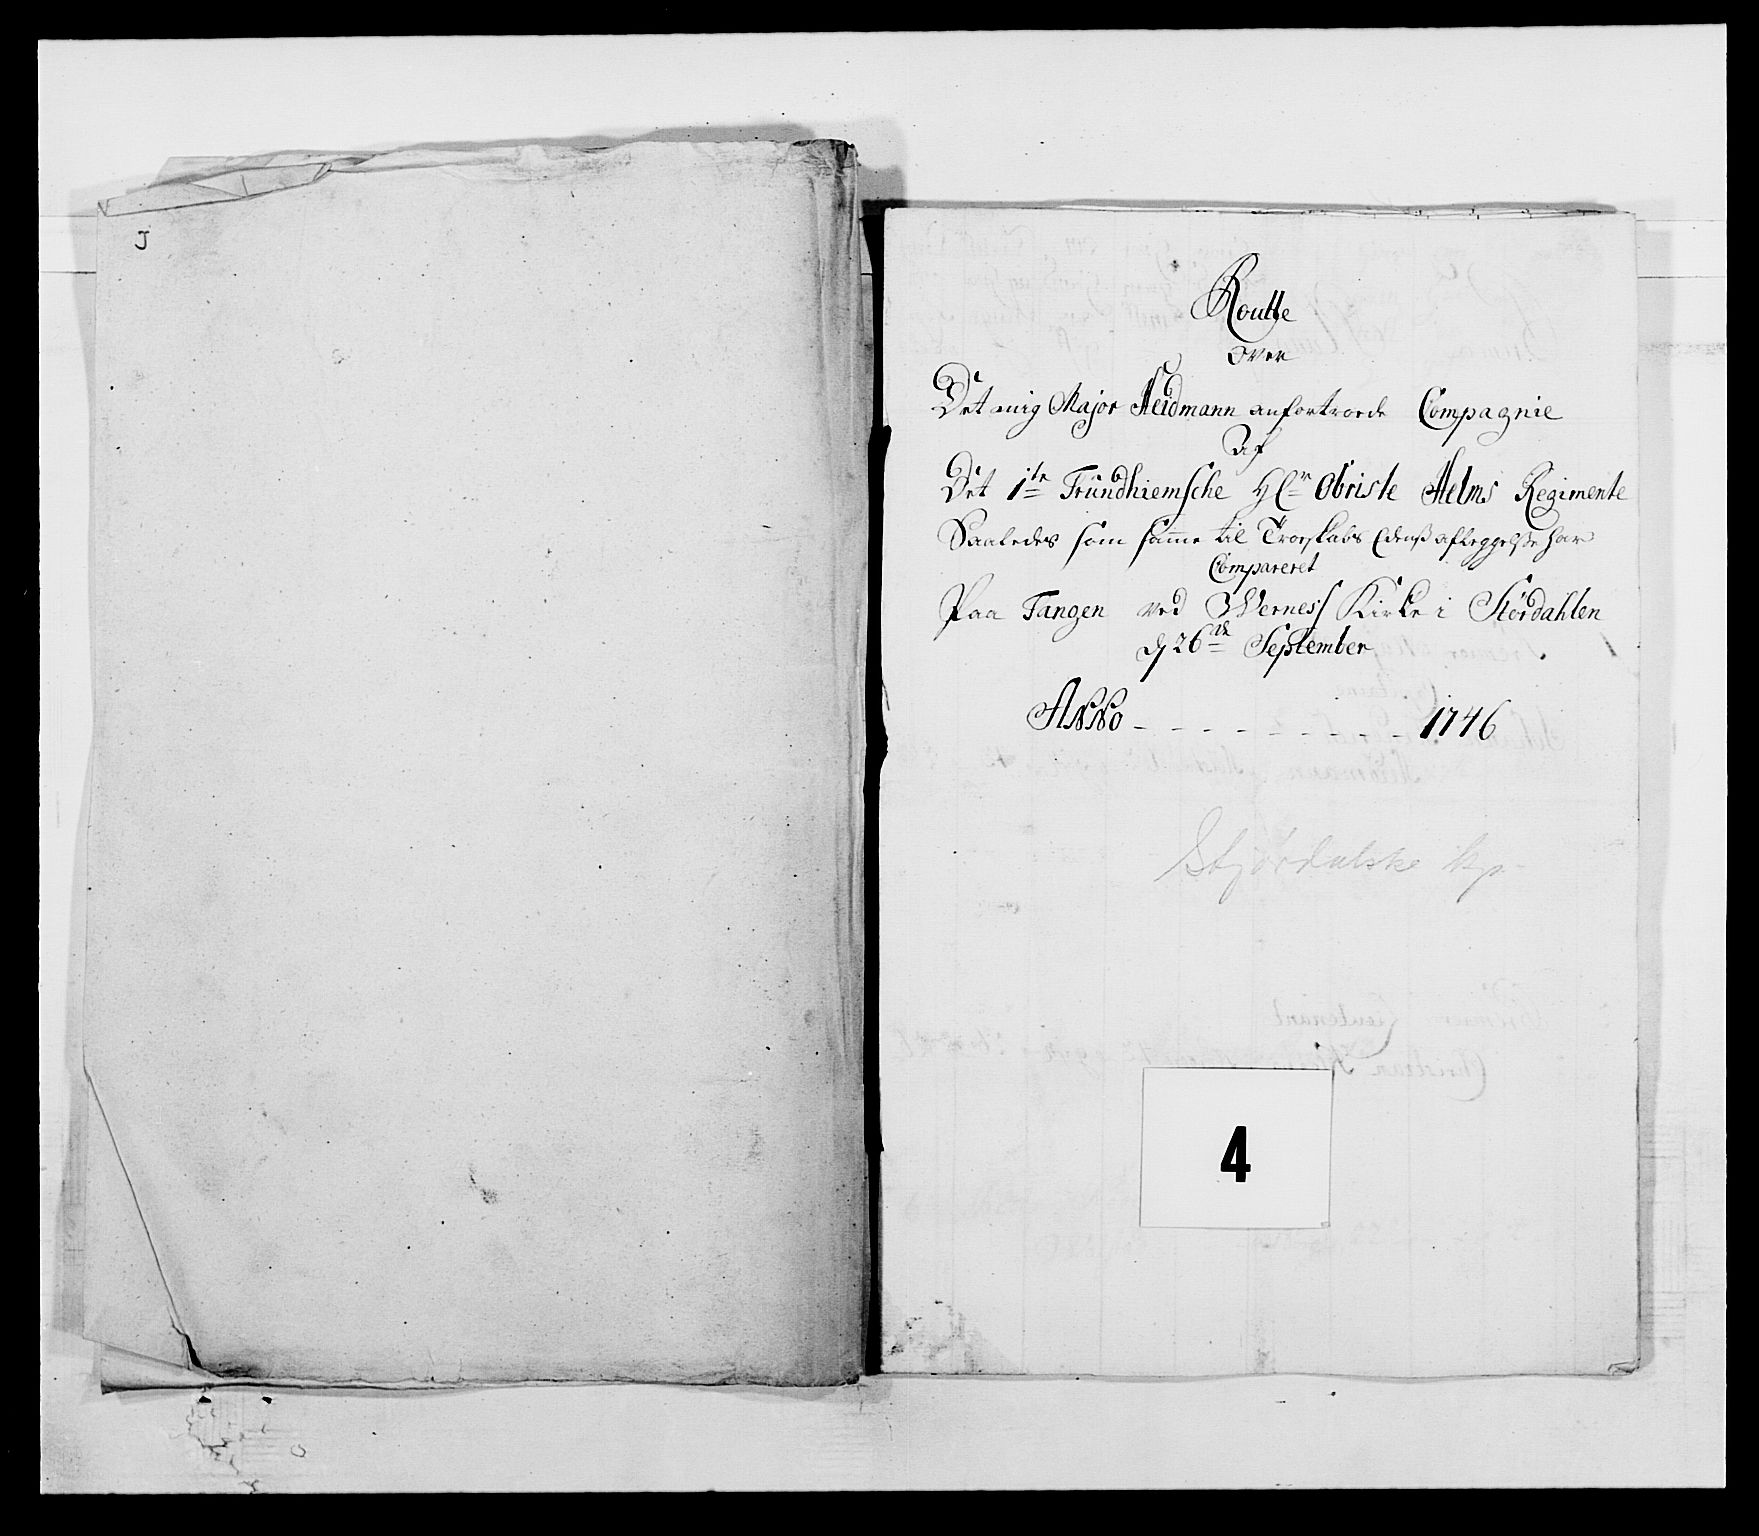 J
Roulle
over
Det mig Major Heidmann anfortroede Compagnie
Af
Det 1te Trundhiemsche H Cr Obriste Helms Regimente
Saaledes som samme til Troeskabs Edens aflæggelse har
Compareret
Paa Tangen ved Werness Kirke i Stördahlen
d 26de September
Anno - - - - - - - - - 1746
Stjørdalske kp.
4